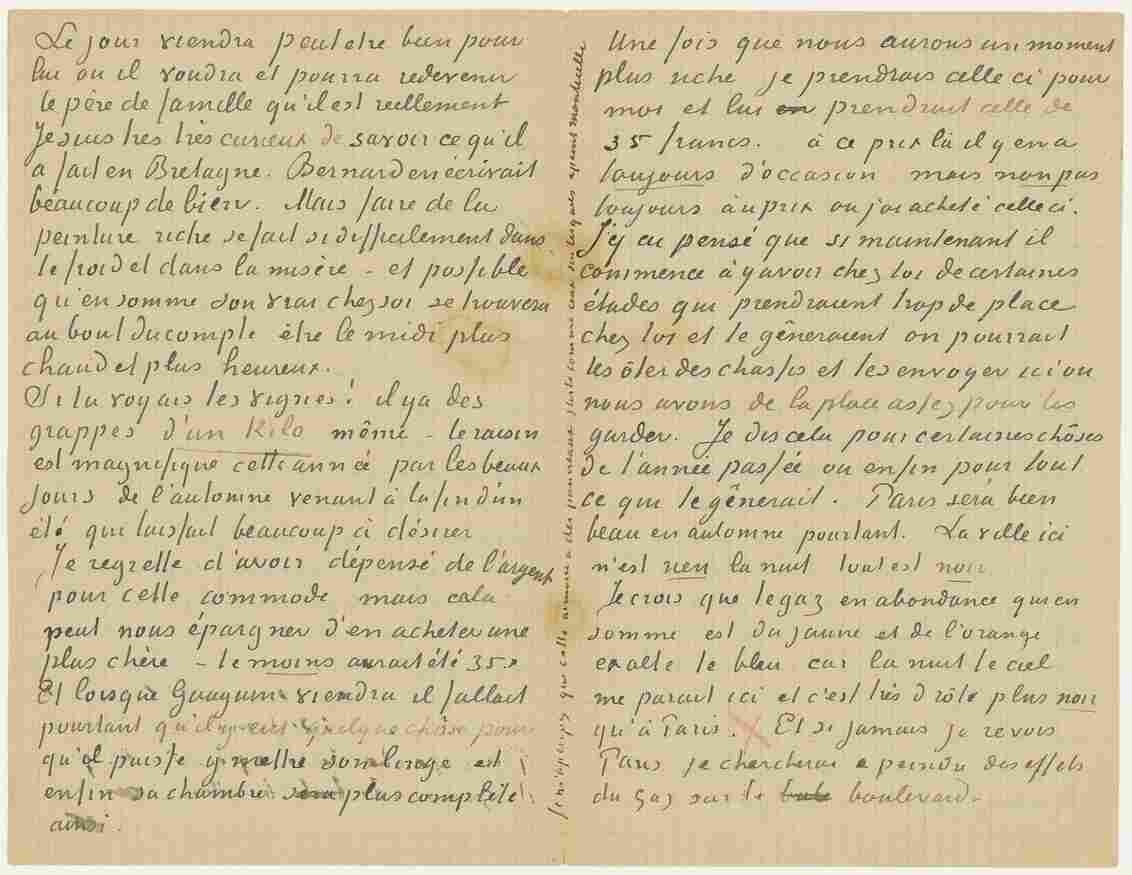 Le jour viendra peut etre bien pour
lui ou il voudra et pourra redevenir
le père de famille qu'il est reellement
Je suis tres très curieux de savoir ce qu'il
a fait en Bretagne. Bernard en écrivait
beaucoup de bien. Mais faire de la
peinture riche se fait si difficilement dans
le froid et dans la misère – et possible
qu'en somme son vrai chez soi se trouvera
au bout du compte être le midi plus
chaud et plus heureux.
Si tu voyais les vignes! il y a des
grappes d'un Kilo même – le raisin
est magnifique cette année par les beaux
jours de l'automne venant à la fin d'un
été qui laissait beaucoup à désirer
Je regrette d'avoir dépensé de l'argent
pour cette commode mais cela
peut nous épargner d'en acheter une
plus chère – le moins aurait été 35.
Et lorsque Gauguin viendra il fallait
pourtant qu'il y eut quelque chose pour
qu'il puisse y mettre son linge et
enfin sa chambre sera plus complète
ainsi.
Je m'aperçois que cette armoire a des panneaux juste comme ceux sur lesquels a peint Monticelli
Une fois que nous aurons un moment
plus riche je prendrais celle ci pour
moi et lui en prendrait celle de
35 francs. à ce prix là il y en a
toujours d'occasion mais non pas
toujours à un prix ou j'ai acheté celle ci.
J'y ai pensé que si maintenant il
commence à y avoir chez toi de certaines
études qui prendraient trop de place
chez toi et te gêneraient on pourrait
les ôter des chassis et les envoyer ici ou
nous avons de la place assez pour les
garder. Je dis cela pour certaines chôses
de l'année passée ou enfin pour tout
ce qui te gênerait. Paris sera bien
beau en automne pourtant. La ville ici
n'est rien la nuit tout est noir
Je crois que le gaz en abondance qui en
somme est du jaune et de l'orange
exalte le bleu car la nuit le ciel
me parait ici et c'est très drôle plus noir
qu'à Paris. Et si jamais je revois
Paris je chercherai à peindre des effets
du gaz sur le boulevard.